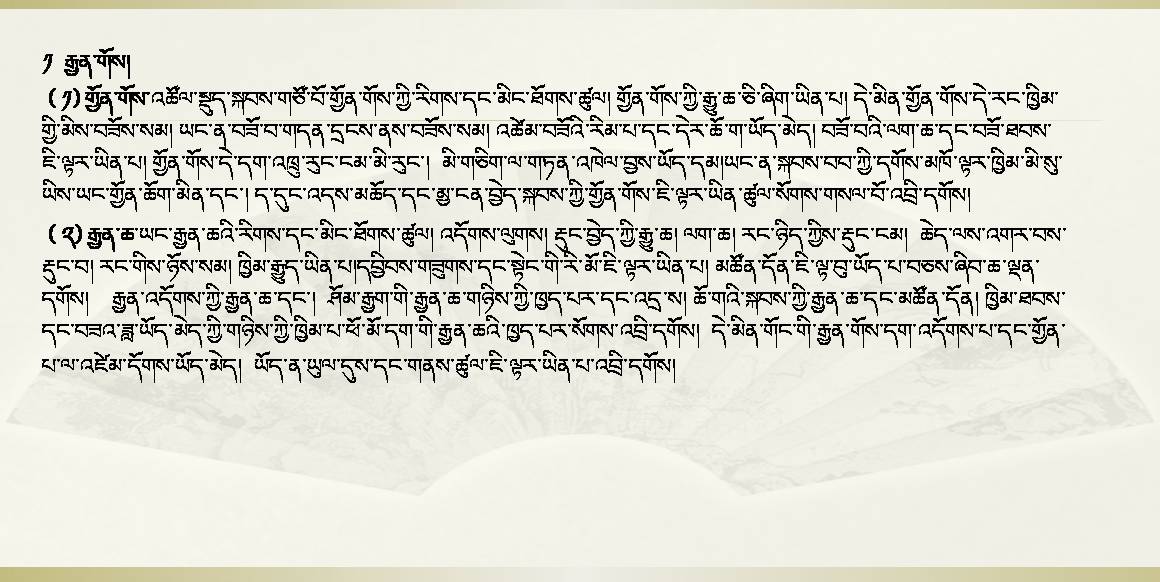 ༡ རྒྱན་གོས།
(༡) གྱོན་གོས་འཚོལ་སྡུད་སྐབས་གཙོ་བོ་གྱོན་གོས་ཀྱི་རིགས་དང་མིང་ཐོགས་ཚུལ། གྱོན་གོས་ཀྱི་རྒྱུ་ཆ་ཅི་ཞིག་ཡིན་པ། དེ་མིན་གྱོན་གོས་དེ་རང་ཁྱིམ་
གྱི་མིས་བཟོས་སམ། ཡང་ན་བཟོ་བ་གདན་དྲངས་ནས་བཟོས་སམ། འཚེམ་བཟོའི་རིམ་པ་དང་དེར་ཆོ་ག་ཡོད་མེད། བཟོ་བའི་ལག་ཆ་དང་བཟོ་ཐབས་
ཇི་ལྟར་ཡིན་པ། གྱོན་གོས་དེ་དག་འཁྲུ་རུང་ངམ་མི་རུང་། མི་གཅིག་ལ་གཏན་འཁེལ་བྱས་ཡོད་དམ།ཡང་ན་སྐབས་བབ་ཀྱི་དགོས་མཁོ་ལྟར་ཁྱིམ་མི་སུ་
ཡིས་ཡང་གྱོན་ཆོག་མིན་དང་། ད་དུང་འདས་མཆོད་དང་མྱ་ངན་བྱེད་སྐབས་ཀྱི་གྱོན་གོས་ཇི་ལྟར་ཡིན་ཚུལ་སོགས་གསལ་བོ་འབྲི་དགོས།
(༢) རྒྱན་ཆ་ཡང་རྒྱན་ཆའི་རིགས་དང་མིང་ཐོགས་ཚུལ། འདོགས་ལུགས། རྡུང་བྱེད་ཀྱི་རྒྱུ་ཆ། ལག་ཆ། རང་ཉིད་ཀྱིས་རྡུང་ངམ། ཆེད་ལས་འགར་བས་
རྡུང་བ། རང་གིས་ཉོས་སམ། ཁྱིམ་རྒྱུད་ཡིན་པ།དབྱིབས་གཟུགས་དང་སྟེང་གི་རི་མོ་ཇི་ལྟར་ཡིན་པ། མཚོན་དོན་ཇི་ལྟ་བུ་ཡོད་པ་བཅས་ཞིབ་ཆ་ལྡན་
དགོས། རྒྱན་འདོགས་ཀྱི་རྒྱན་ཆ་དང་། ཤོམ་རྒྱག་གི་རྒྱན་ཆ་གཉིས་ཀྱི་ཁྱད་པར་དང་འདྲ་ས། ཆོ་གའི་སྐབས་ཀྱི་རྒྱན་ཆ་དང་མཚོན་དོན། ཁྱིམ་ཐབས་
དང་བཟའ་ཟླ་ཡོད་མེད་ཀྱི་གཉིས་ཀྱི་ཁྱིམ་པ་ཕོ་མོ་དག་གི་རྒྱན་ཆའི་ཁྱད་པར་སོགས་འབྲི་དགོས། དེ་མིན་གོང་གི་རྒྱན་གོས་དག་འདོགས་པ་དང་གྱོན་
པ་ལ་འཛེམ་དོགས་ཡོད་མེད། ཡོད་ན་ཡུལ་དུས་དང་གནས་ཚུལ་ཇི་ལྟར་ཡིན་པ་འབྲི་དགོས།